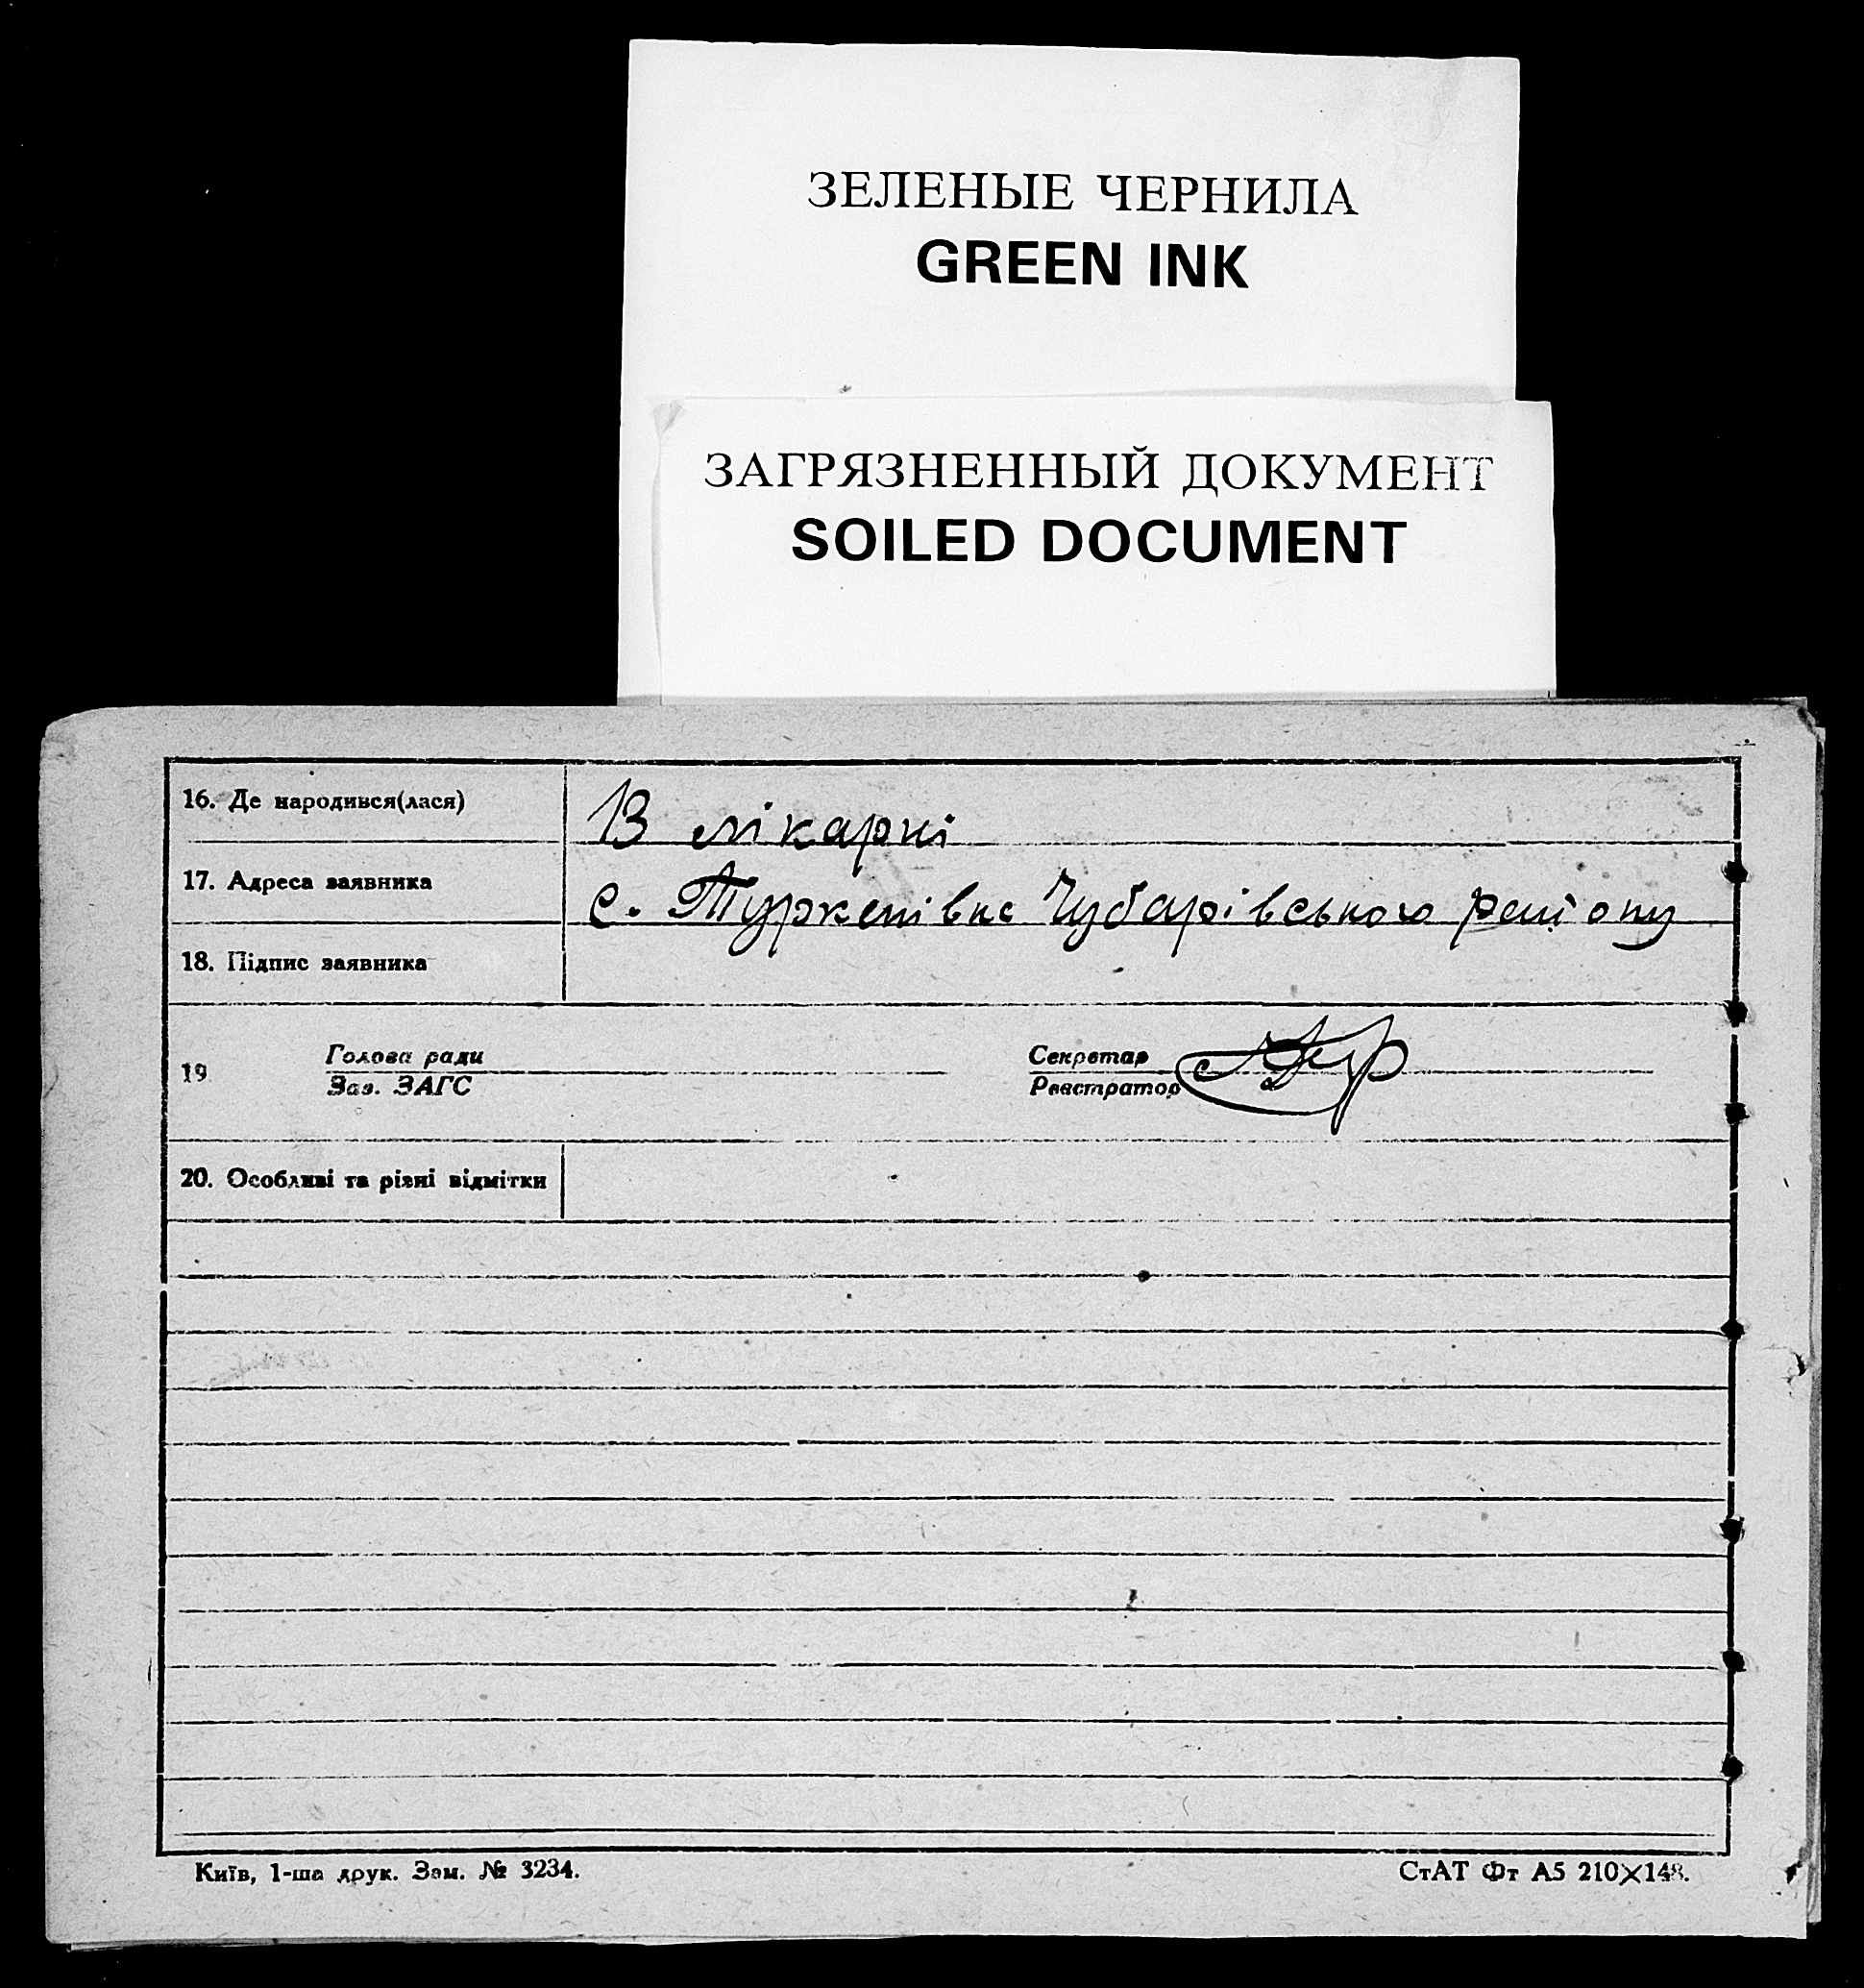 ЗЕЛЕНЫЕ ЧЕРНИЛА
GREEN INK
ЗАГРЯЗНЕННЫЙ ДОКУМЕНТ
SOILED DOCUMENT
16. Де народився(лася)
В лікарні
17. Адреса заявника
с. Туркенівка Чубарівського району
18. Підпис заявника
19 Голова ради Секретар
Зав. ЗАГС Реєстратор
20. Особливі та різні відмітки
Київ, 1-ша друк. Зам. № 3234. СтАТ Фт А5 210×148.